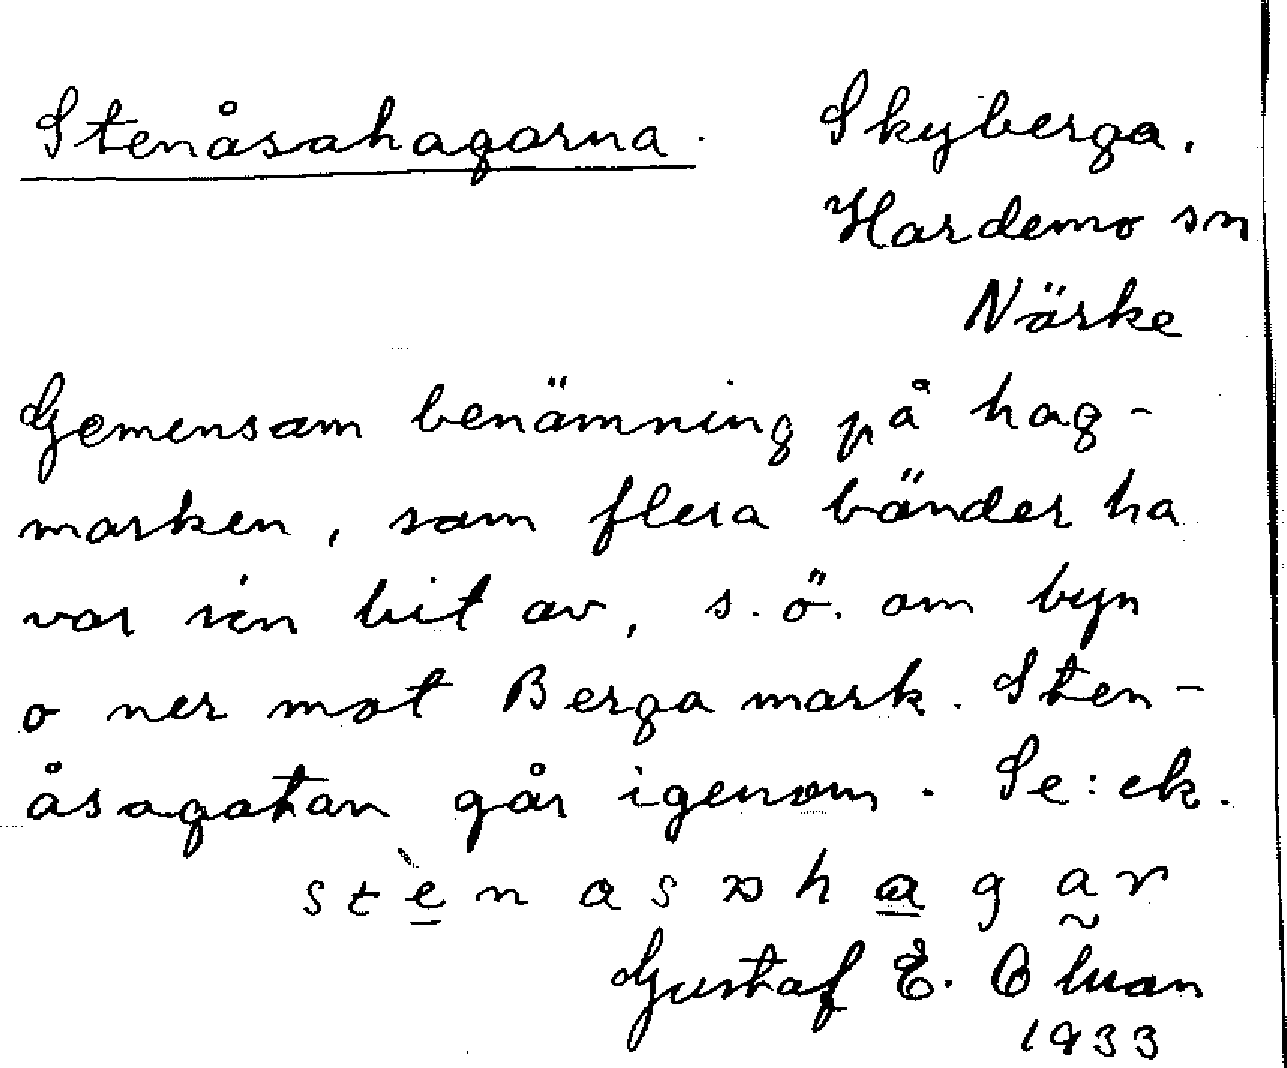 Stenåsahagarna. Skyberga.
Hardemo sn
Närke
Gemensam benämning på hag-
marken, som flera bönder ha
var sin bit av, s.ö. om byn
o ner mot Berga mark. Sten-
åsagatan går igenom. Se: ek.
stènasəhagar
Gustaf E.
1933